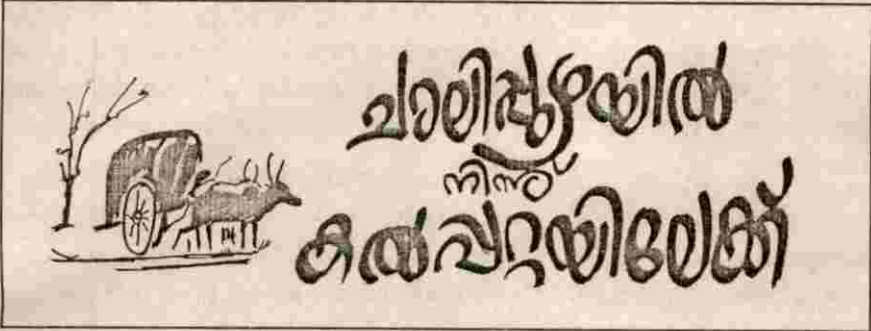 ചാലിപ്പുഴയിൽ
നിന്ന്
കൽപ്പറ്റയിലേക്ക്